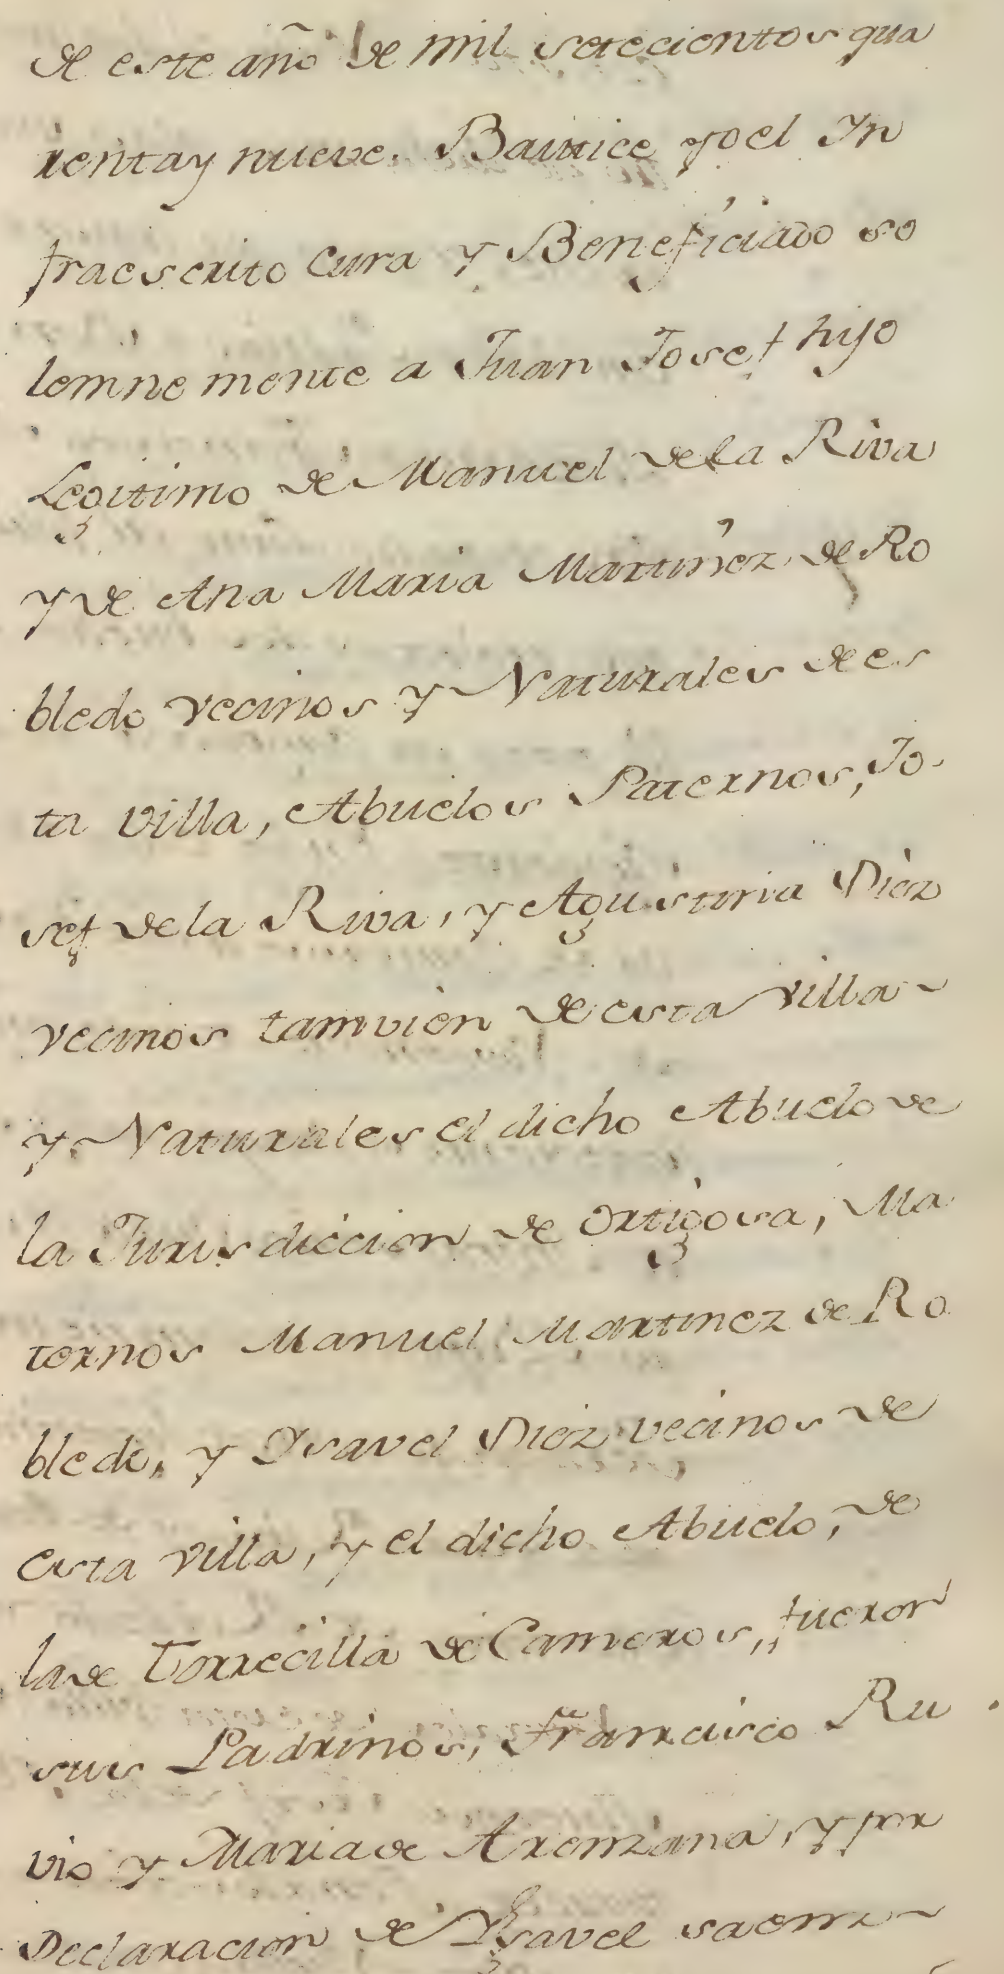 de este año de mil setecientos qua
renta y nueve. Bautice yo el In
fraescrito Cura y Beneficiado so
lemne mente a Juan Josef hijo
Legitimo de Manuel de la Riva
y de Ana Maria Martinez de Ro
bledo vecinos y Naturales de es
ta villa, Abuelos Paternos, Jo-
sef de la Riva, y Agustina Diez
vecinos tamvien de esta villa -
y Naturales el dicho Abuelo de
la Jurisdiccion de Ortigosa, Ma
ternos Manuel Martinez de Ro
bledo, y Ysavel Diez vecinos de
esta villa, y el dicho Abuelo, de
la de Torrecilla de Cameros, fueron
sus Padrinos, Francisco Ru
vio y Maria de Arenzana, y por
Declaracion de Ysavel saenz -